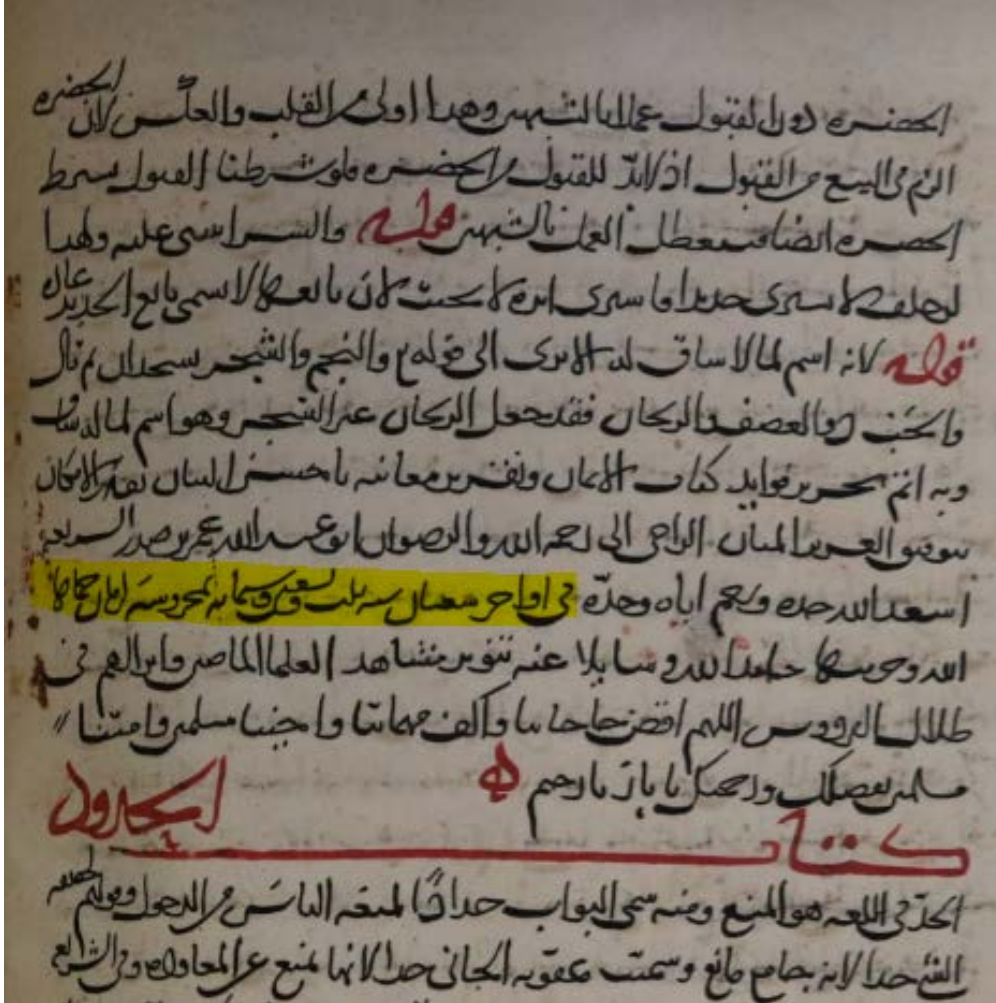 الحضره دون القبول عملا بالشبهين وهذا اولى من القلب والعكس لان الحضره
الزم في البيع من القبول اذ لابد للقبول من الحضره فلو شرطنا القبول بشرط
الحضره ايضا تعطل العمل بالشبهين قوله والشراء عليه ولهذا
لو حلف لا يشترى حديدا فاشترى ابرة لا يحنث لان بائعها لا يسمى بائع الحديد
قوله لانه اسم لما لا ساق له الا يرى الى قوله تع والنجم والشجر يسجدان ثم قال
والحب ذو العصف والريحان فقد جعل الريحان غير الشجر وهو اسم لما له ساق
وبه اتم تحرير فوايد كتاب الايمان وتقرير معانيه باحسن البيان بقدر الامكان
بتوفيق العزيز المنان الراجى الى رحمة الله والرضوان ابو عبد الله عمر بن صدر الشريعه
اسعد الله جده ورحم اباه وجده في اواخر شعبان سنه ثلث وتسعين وستمايه بمحروسة حماها
الله وحرسها حامدا لله وسايلا عنه تنوير مشاهد العلما الماضين وابرالهم في
ظلال الفردوس اللهم اقض حاجاتنا واكف مهماتنا واحينا مسلمين وامتنا
مسلمين بفضلك ورحمتك يا بار يا رحيم
كتاب الحدود
الحد في اللغه هو المنع ومنه سمى البواب حدادا لمنعه الناس من الدخول
الشئ حدا لانه جامع مانع وسميت عقوبه الجانى حدا لانها تمنع عن المعاوده وفي الشرايع